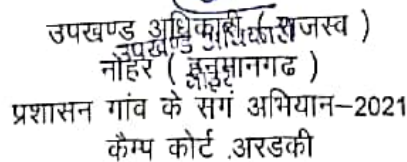 उपखण्ड अधिकारी ( राजस्व )
नोहर ( हनुमानगढ )
प्रशासन गांव के सगं अभियान–2021
कैम्प कोर्ट .अरडकी